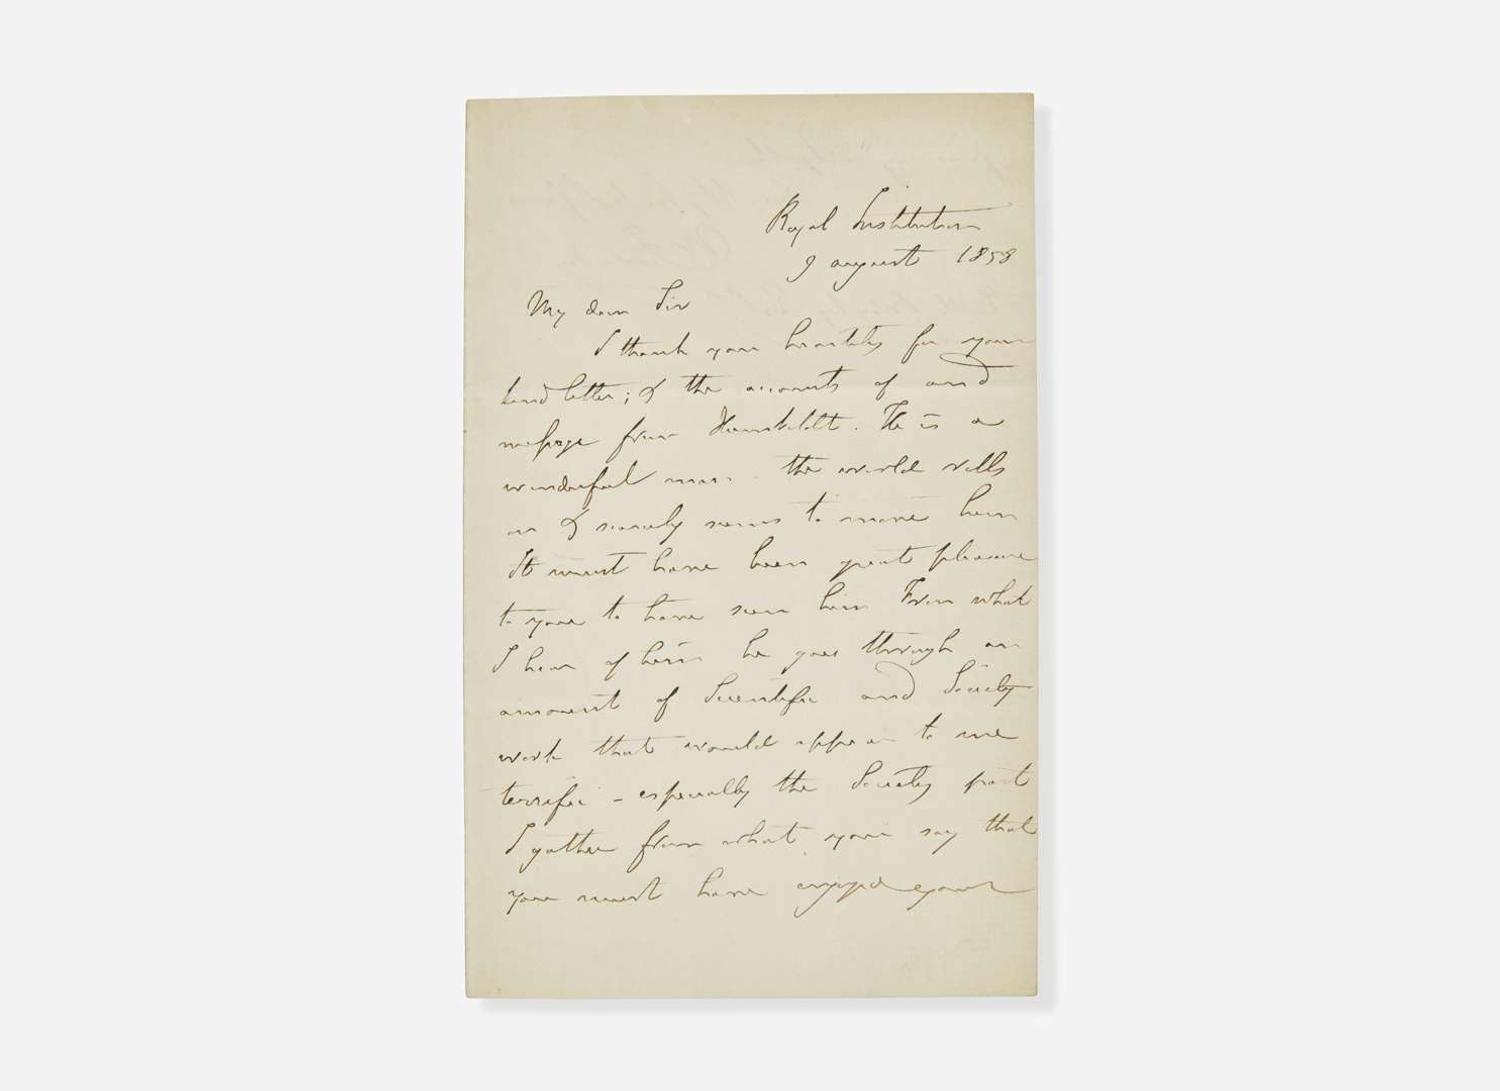 Royal Institution
9 August 1858
My dear Sir
I thank you heartily for your
kind letter; & the accounts of and
message from Humboldt. He is a
wonderful man. the world rolls
on & scarcely seems to move him
It must have been great pleasure
to you to have seen him From what
I hear of him he goes through an
amount of Scientific and Society
work that would appear to me
terrific - especially the Society part
I gather from what you say that
you must have enjoyed your